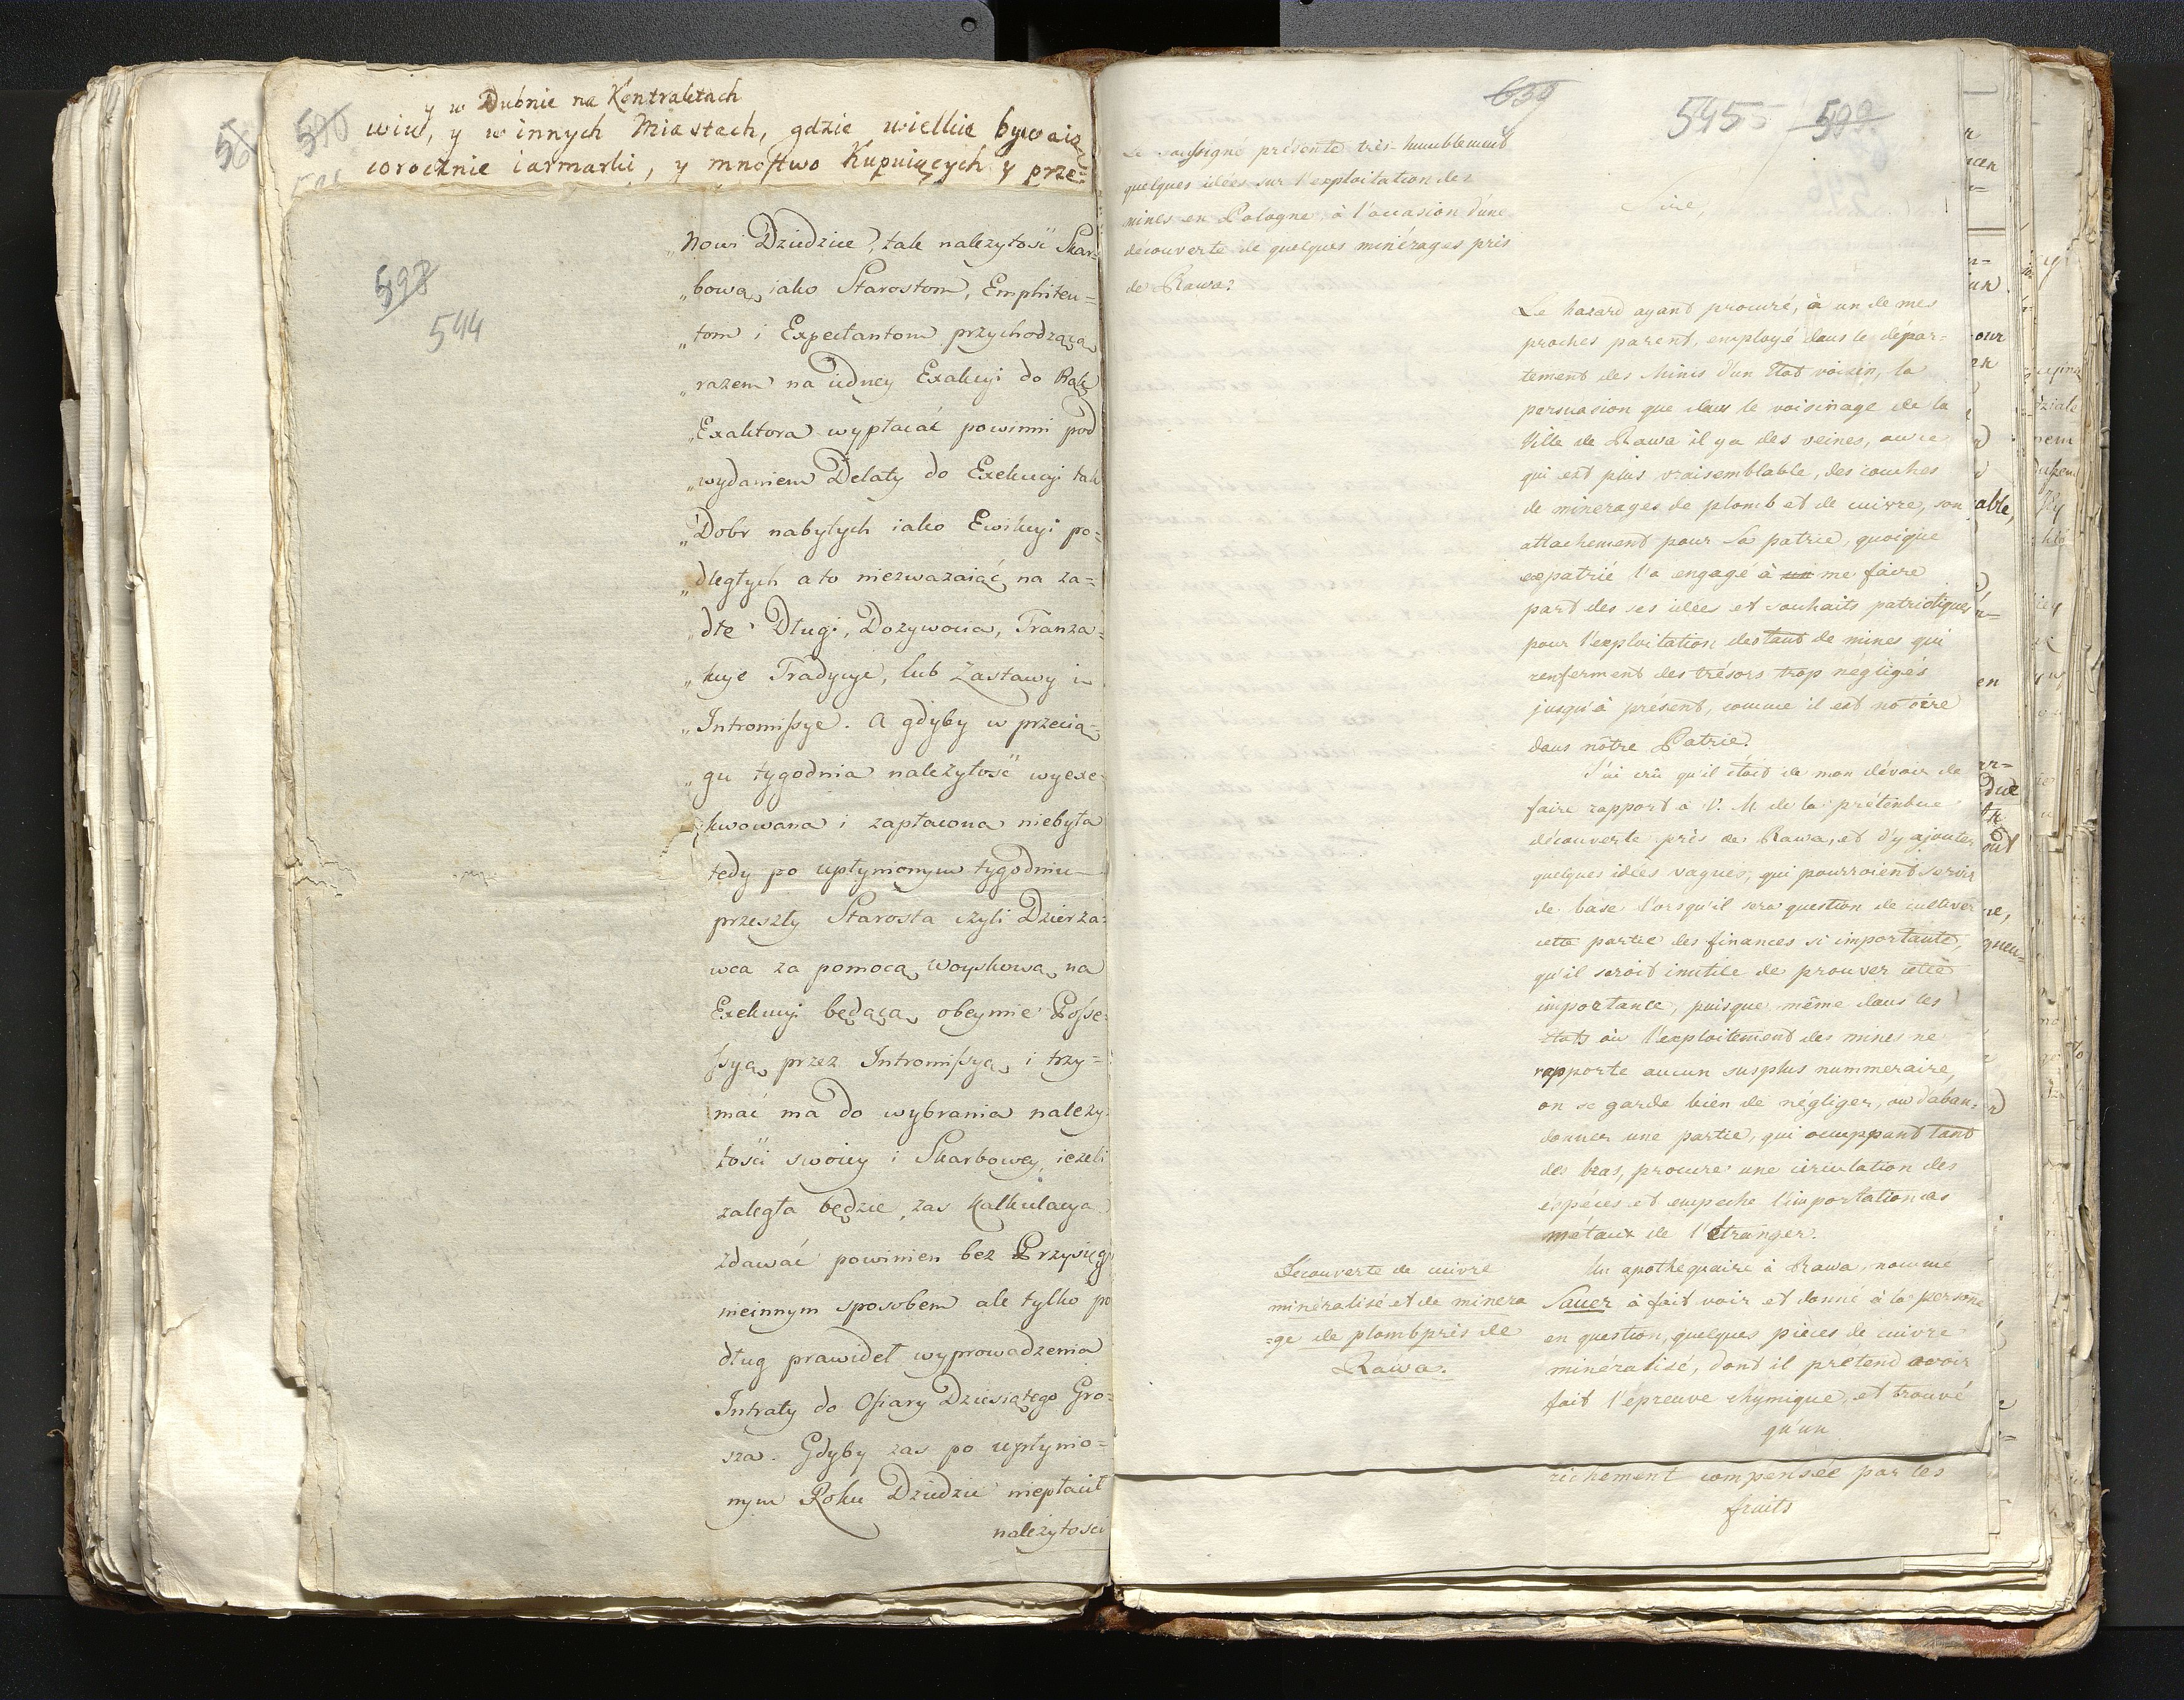 y w Dubnie na Kontraktach
wiu, y w innych Miastach, gdzie wielkie bywaią
corocznie iarmarki, y mnoſtwo Kupuiących y prze=
590
598
544
„Nowi Dziedzice, tak nalezytosć Skar=
„bową, iako Starostom, Emphiteu=
„tom i Expectantom przychodzącą
„razem na iedney Exakcyi do Rąk
„Exaktora wypłacać powinni pod
„wydaniem Delaty do Exekucyi tak
„Dobr nabytych iako Ewikcyi po=
„dległych a to niezwazaiąć na za=
„dte Długi, Dozywocia, Tranza=
„kcye Tradycye, lub Zastawy i
„Intromiſsye. A gdyby w przecią=
„gu tygodnia nalezytosć wyexe=
„kwowana i zapłacona niebyła
tedy po upłynionym tygodniu
przeszły Starosta czyli Dzierza=
wca za pomocą woyskową na
Exekucyi będącą obeymie Poſse=
ſsyą przez Intromiſsyą i trzy=
mać ma do wybrania nalezy=
tości swoiey i Skarbowey, iezeli
zaległa będzie, zas Kalkulacya
zdawać powinien bez Przysięgi
nieinnym sposobem ale tylko po
dług prawideł wyprowadzenia
Intraty do Ofiary Dziesiątego Gro=
sza. Gdyby zas po upłynio=
nym Roku Dziedzic niepłacił
nalezytosci
639
545 599
Le souſsigné présente très-humblement
quelques idées sur l'exploitation des
mines en Pologne, à l'occasion d'une
découverte de quelques minérages près
de Rawa.
Sire,
Le hazard ayant procuré, à un de mes
proches parent, employé dans le dépar=
tement des Mines d'un Etat voisin, la
persuasion que dans le voisinage de la
Ville de Rawa il y a des veines, ou ce
qui est plus vraisemblable, des couches
de minerages de plomb et de cuivre, son
attachement pour sa patrie, quoique
expatrié l'a engagé à me faire
part des ses idées et souhaits patriotiques
pour l'exploitation des tant de mines qui
renferment des trésors trop negligés
jusqu'à présent, comme il est notoire
dans nôtre Patrie.
J'ai crû qu'il étoit de mon dévoir de
faire rapport à V. M. de la prétendue
découverte près de Rawa, et d'y ajouter
quelques idées vagues, qui pourroient servir
de base lorsqu'il sera question de cultiver
cette partie des finances si importante,
qu'il seroit inutile de prouver cette
importance, puisque même dans les
états où l'exploitement des mines ne
rapporte aucun susplus nummeraire,
on se garde bien de négliger, ou d'aban=
donner une partie, qui occuppant tant
des bras, procure une circulation des
espèces et empeche l'importation des
métaux de l'étranger.
Découverte de cuivre
minéralisé et de minera
=ge de plomb près de
Rawa.
Un apothequaire à Rawa, nommé
Sauer à fait voir et donné à la personne
en question, quelques pièces de cuivre
minéralisé, dont il prétend avoir
fait l'epreuve chymique, et trouvé
qu'un
richement compensée par les
fruits